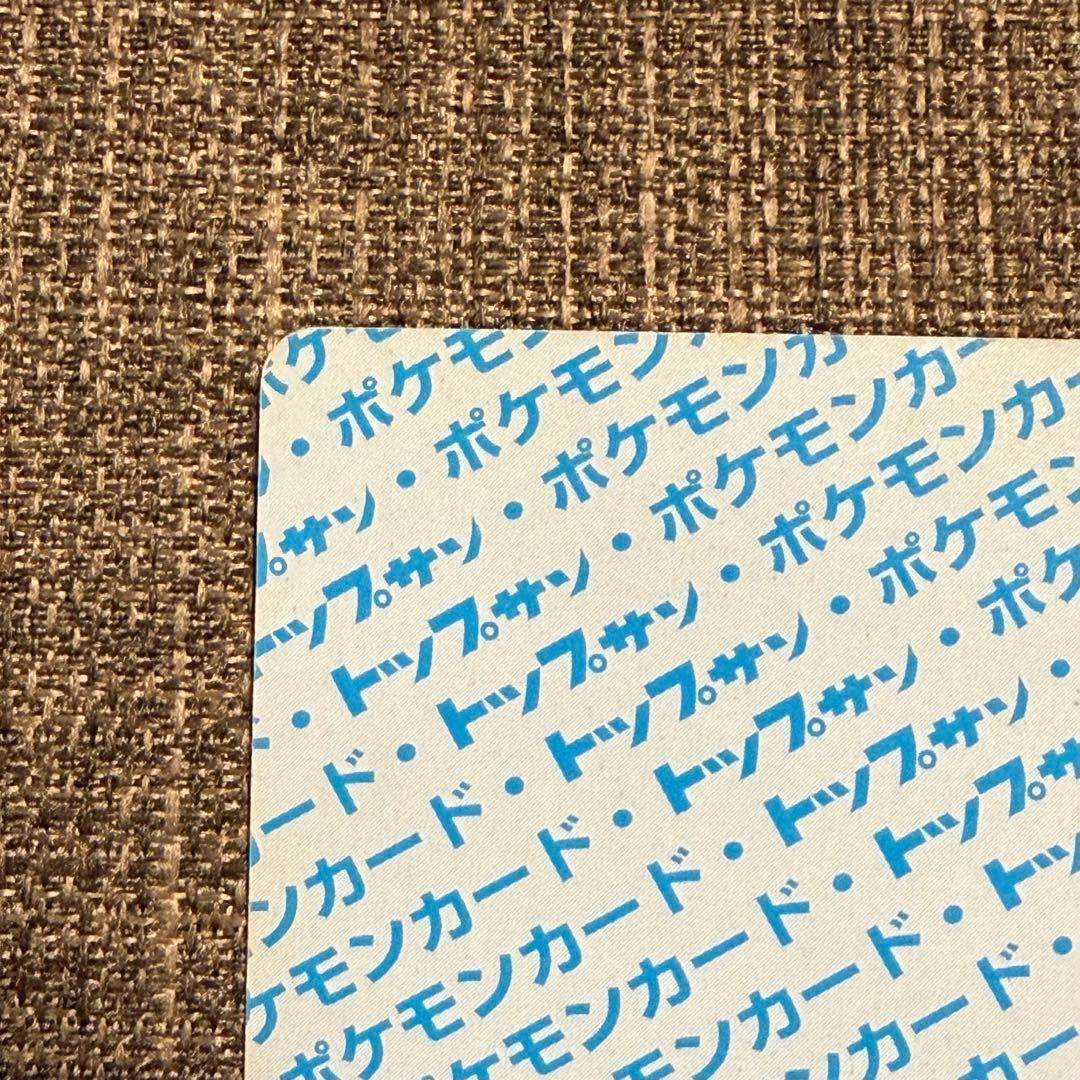 ポケ
・ポケモン
プサン・ポケモン
ップサン・ポケモンカ
・トップサン・ポケモンカー
ード・トップサン・ポケモンカ
ンカード・トップサン・ポケモン
ケモンカード・トップサン・ポケ
ポケモンカード・トップサン・
ケモンカード・トップサ
モンカード・トッ
ンカード・
カー